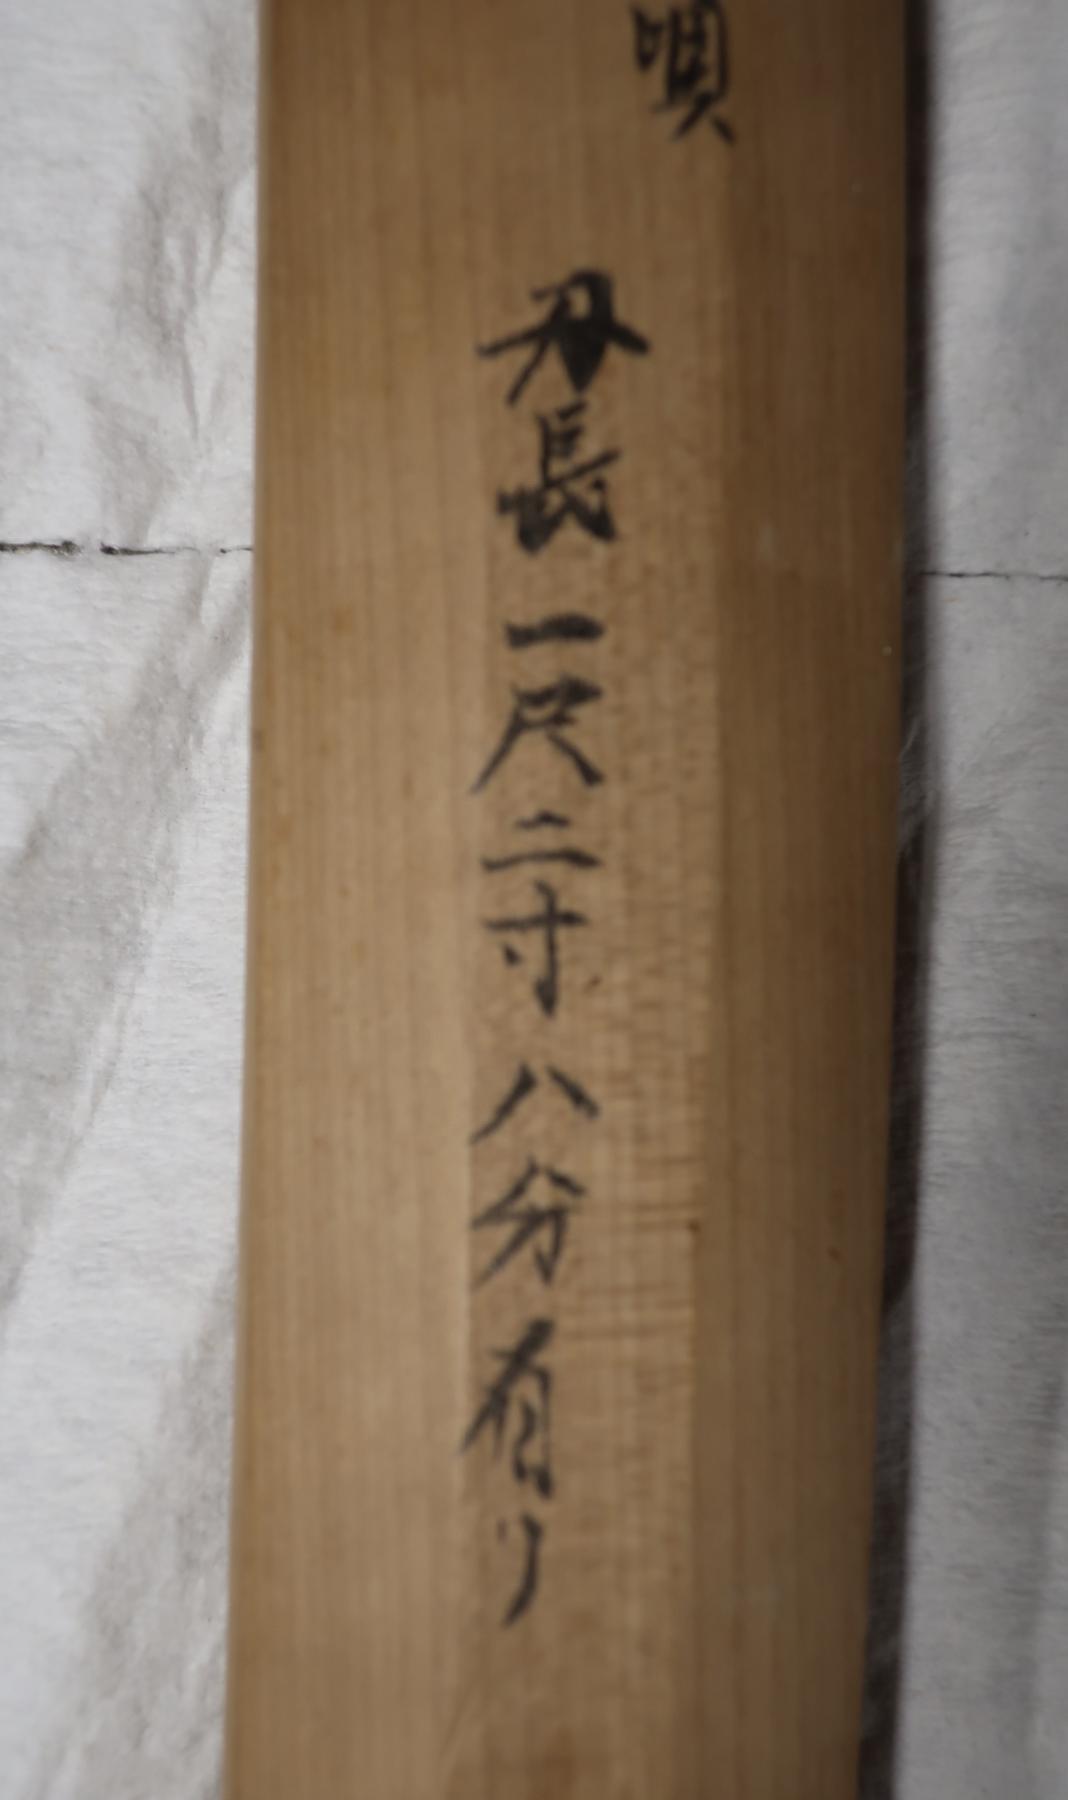 唄
刃長一尺二寸八分有り